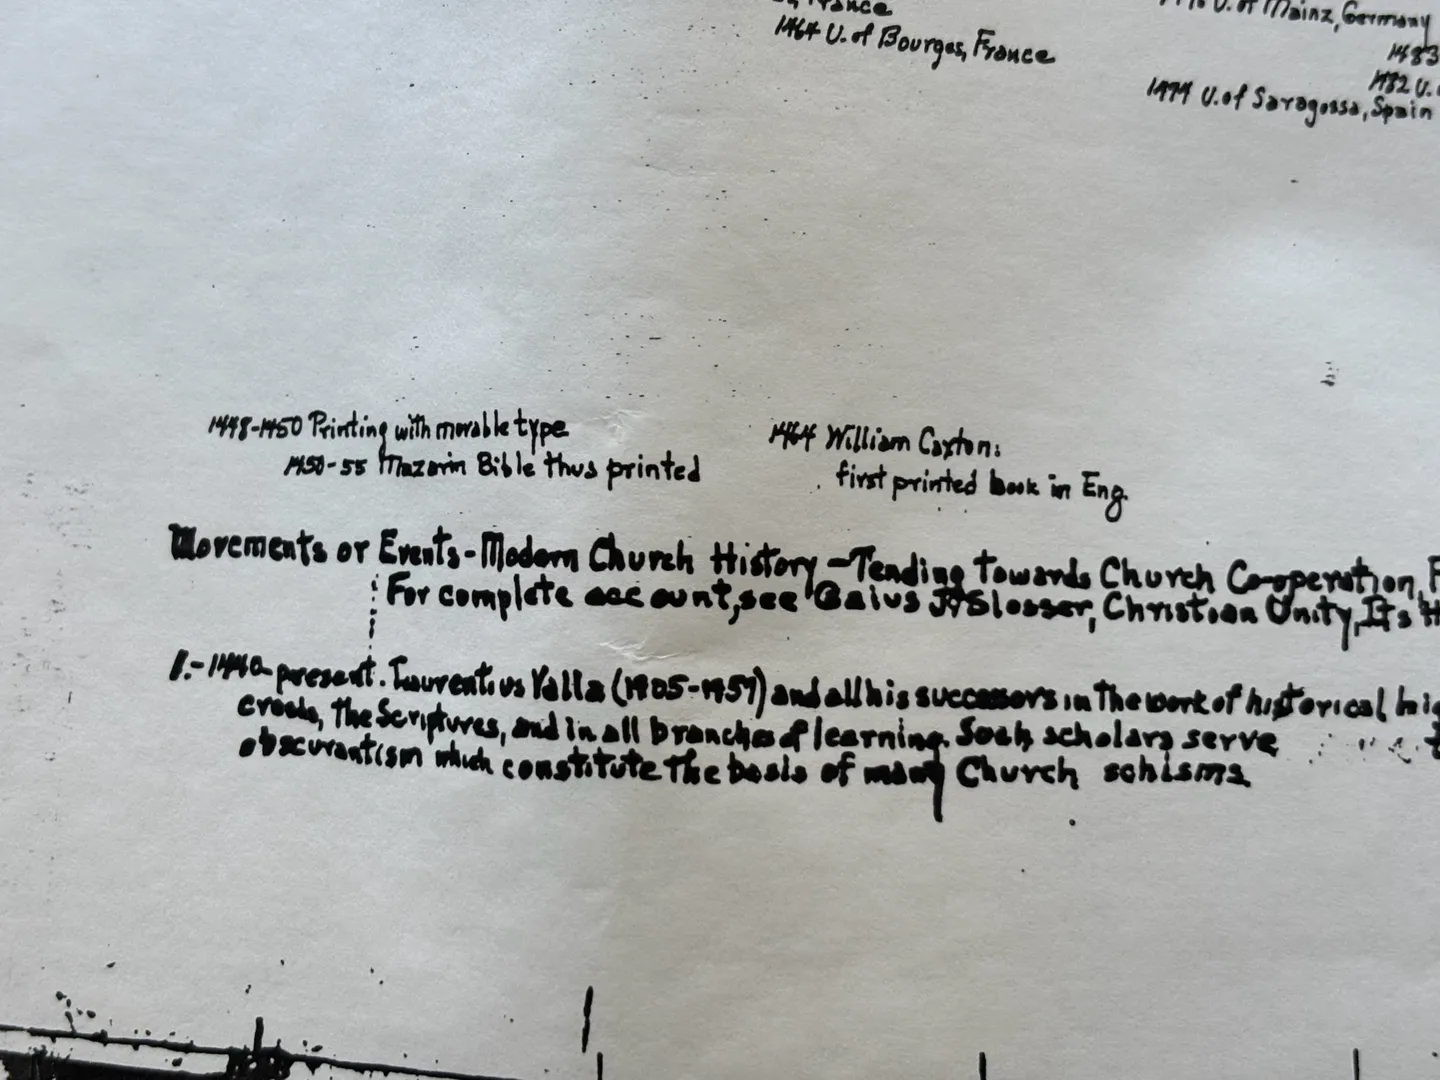 France
1464 U. of Bourges, France
U. of Mainz, Germany
1483
1482 U.
1474 U. of Saragossa, Spain
1448-1450 Printing with movable type
1450-55 Mazarin Bible thus printed
1464 William Caxton:
first printed book in Eng.
Movements or Events-Modern Church History-Tending towards Church Co-operation, F
For complete account, see Gaius J. Slosser, Christian Unity, Its H
1.-1440-present. Laurentius Valla (1405-1457) and all his successors in the work of historical
creeds, the Scriptures, and in all branches of learning. Such scholars serve
obscurantism which constitute the basis of many Church schisms.